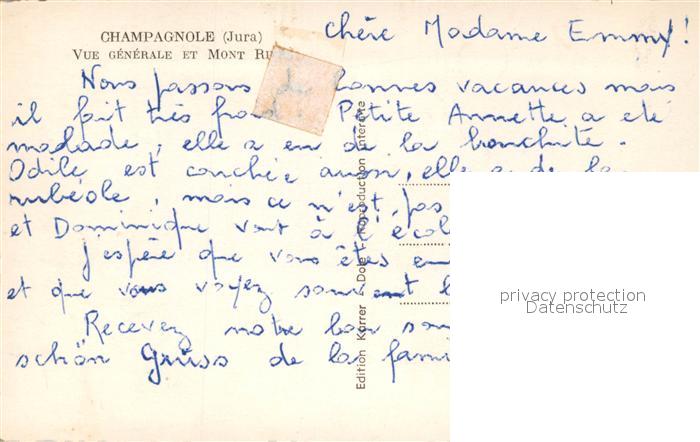 CHAMPAGNOLE (Jura)
VUE GÉNÉRALE ET MONT
chère Madame Emmy!
Nous passons de bonnes vacances mais
il fait très froid. Petite Annette a été
malade, elle a eu de la bronchite.
Odile est couchée aussi, elle a de la
rubéole, mais ce n'est pas
et Dominique vont à l'école
J'espère que vous êtes en
et que vous voyez souvent
Recevez notre bon
schön Grüss de la
Edition Karrer - Dole - Reproduction interdite
privacy protection
Datenschutz